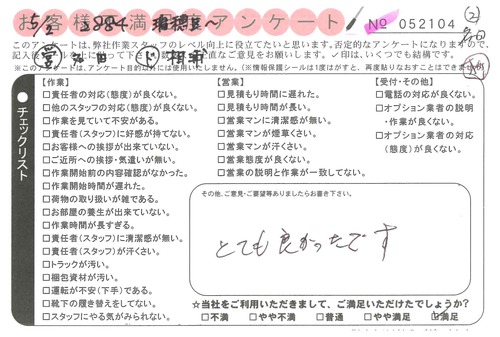 お客様不満足アンケート № 052104
このアンケートは、弊社作業スタッフのレベル向上に役立てたいと思います。否定的なアンケートになりますので、
※このアンケートは、アンケート目的以外には使用しません。(※情報保護シールは1度はがすと、再度貼りなおすことはできません)
チェックリスト
【作業】
□責任者の対応(態度)が良くない。
□他のスタッフの対応(態度)が良くない。
□作業を見ていて不安がある。
□責任者(スタッフ)に好感が持てない。
□お客様への挨拶が出来ていない。
□ご近所への挨拶・気遣いが無い。
□作業開始前の内容確認がなかった。
□作業開始時間が遅れた。
□荷物の取り扱いが雑である。
□お部屋の養生が出来ていない。
□作業時間が長すぎる。
□責任者(スタッフ)に清潔感が無い。
□責任者(スタッフ)が汗くさい。
□トラックが汚い。
□梱包資材が汚い。
□運転が不安(下手)である。
□靴下の履き替えをしてない。
□スタッフにやる気がみられない。
【営業】
□見積もり時間に遅れた。
□見積もり時間が長い。
□営業マンに清潔感が無い。
□営業マンが煙草くさい。
□営業マンが汗くさい。
□営業態度が良くない。
□営業の説明と作業が一致してない。
【受付・その他】
□電話の対応が良くない。
□オプション業者の説明
・作業が良くない。
□オプション業者の対応
(態度)が良くない。
その他、ご意見・ご要望等ありましたらお書き下さい。
とても良かったです
☆当社をご利用いただきまして、ご満足いただけたでしょうか?
□不満 □やや不満 □普通 □やや満足 ☑満足